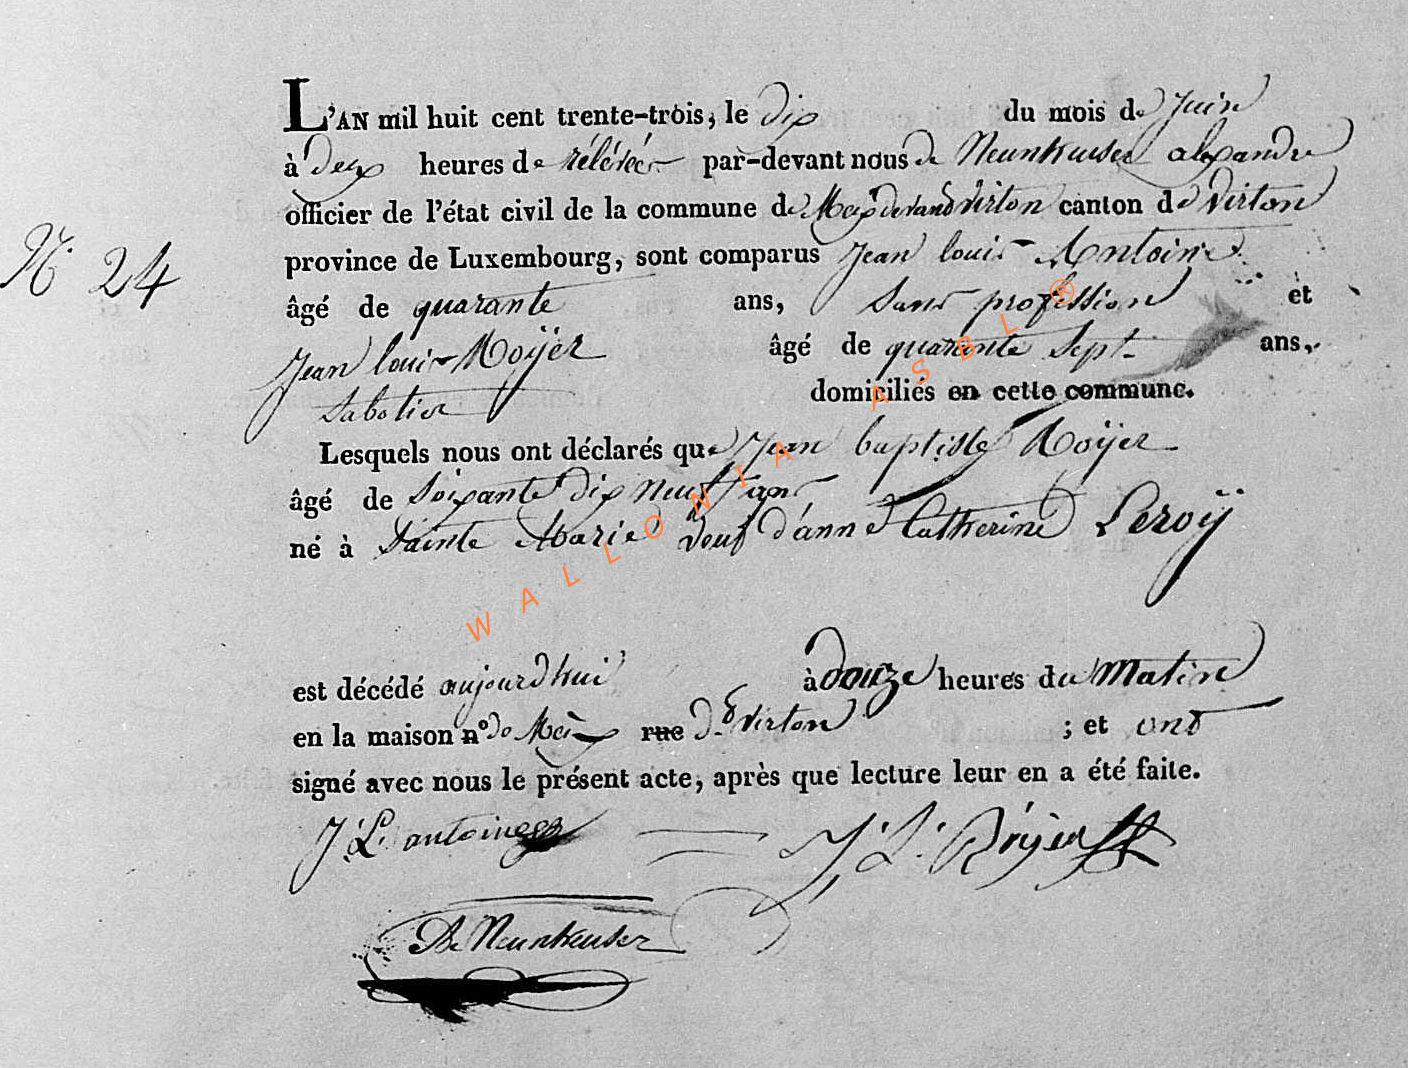 L'AN mil huit cent trente-trois, le dix du mois de Juin
à deux heures de rélévée par-devant nous de Neunheuser alexandre
officier de l'état civil de la commune de Meix devand virton canton de Virton
N° 24
province de Luxembourg, sont comparus Jean louis Antoine
âgé de quarante ans, Sans profession et
Jean louis Roÿer âgé de quarante Sept ans,
Sabotier domiciliés en cette commune.
Lesquels nous ont déclarés que Jean baptiste Roÿer
âgé de Soixante dix neuf ans
né à Sainte Marie Veuf d'anne Catherine Leroÿ
est décédé aujourdhui à douze heures du Matin
en la maison n° de Meix rue d.t Virton ; et ont
signé avec nous le présent acte, après que lecture leur en a été faite.
J L antoine J. L. Röyer
De Neunheuser
WALLONIA ASBL ®